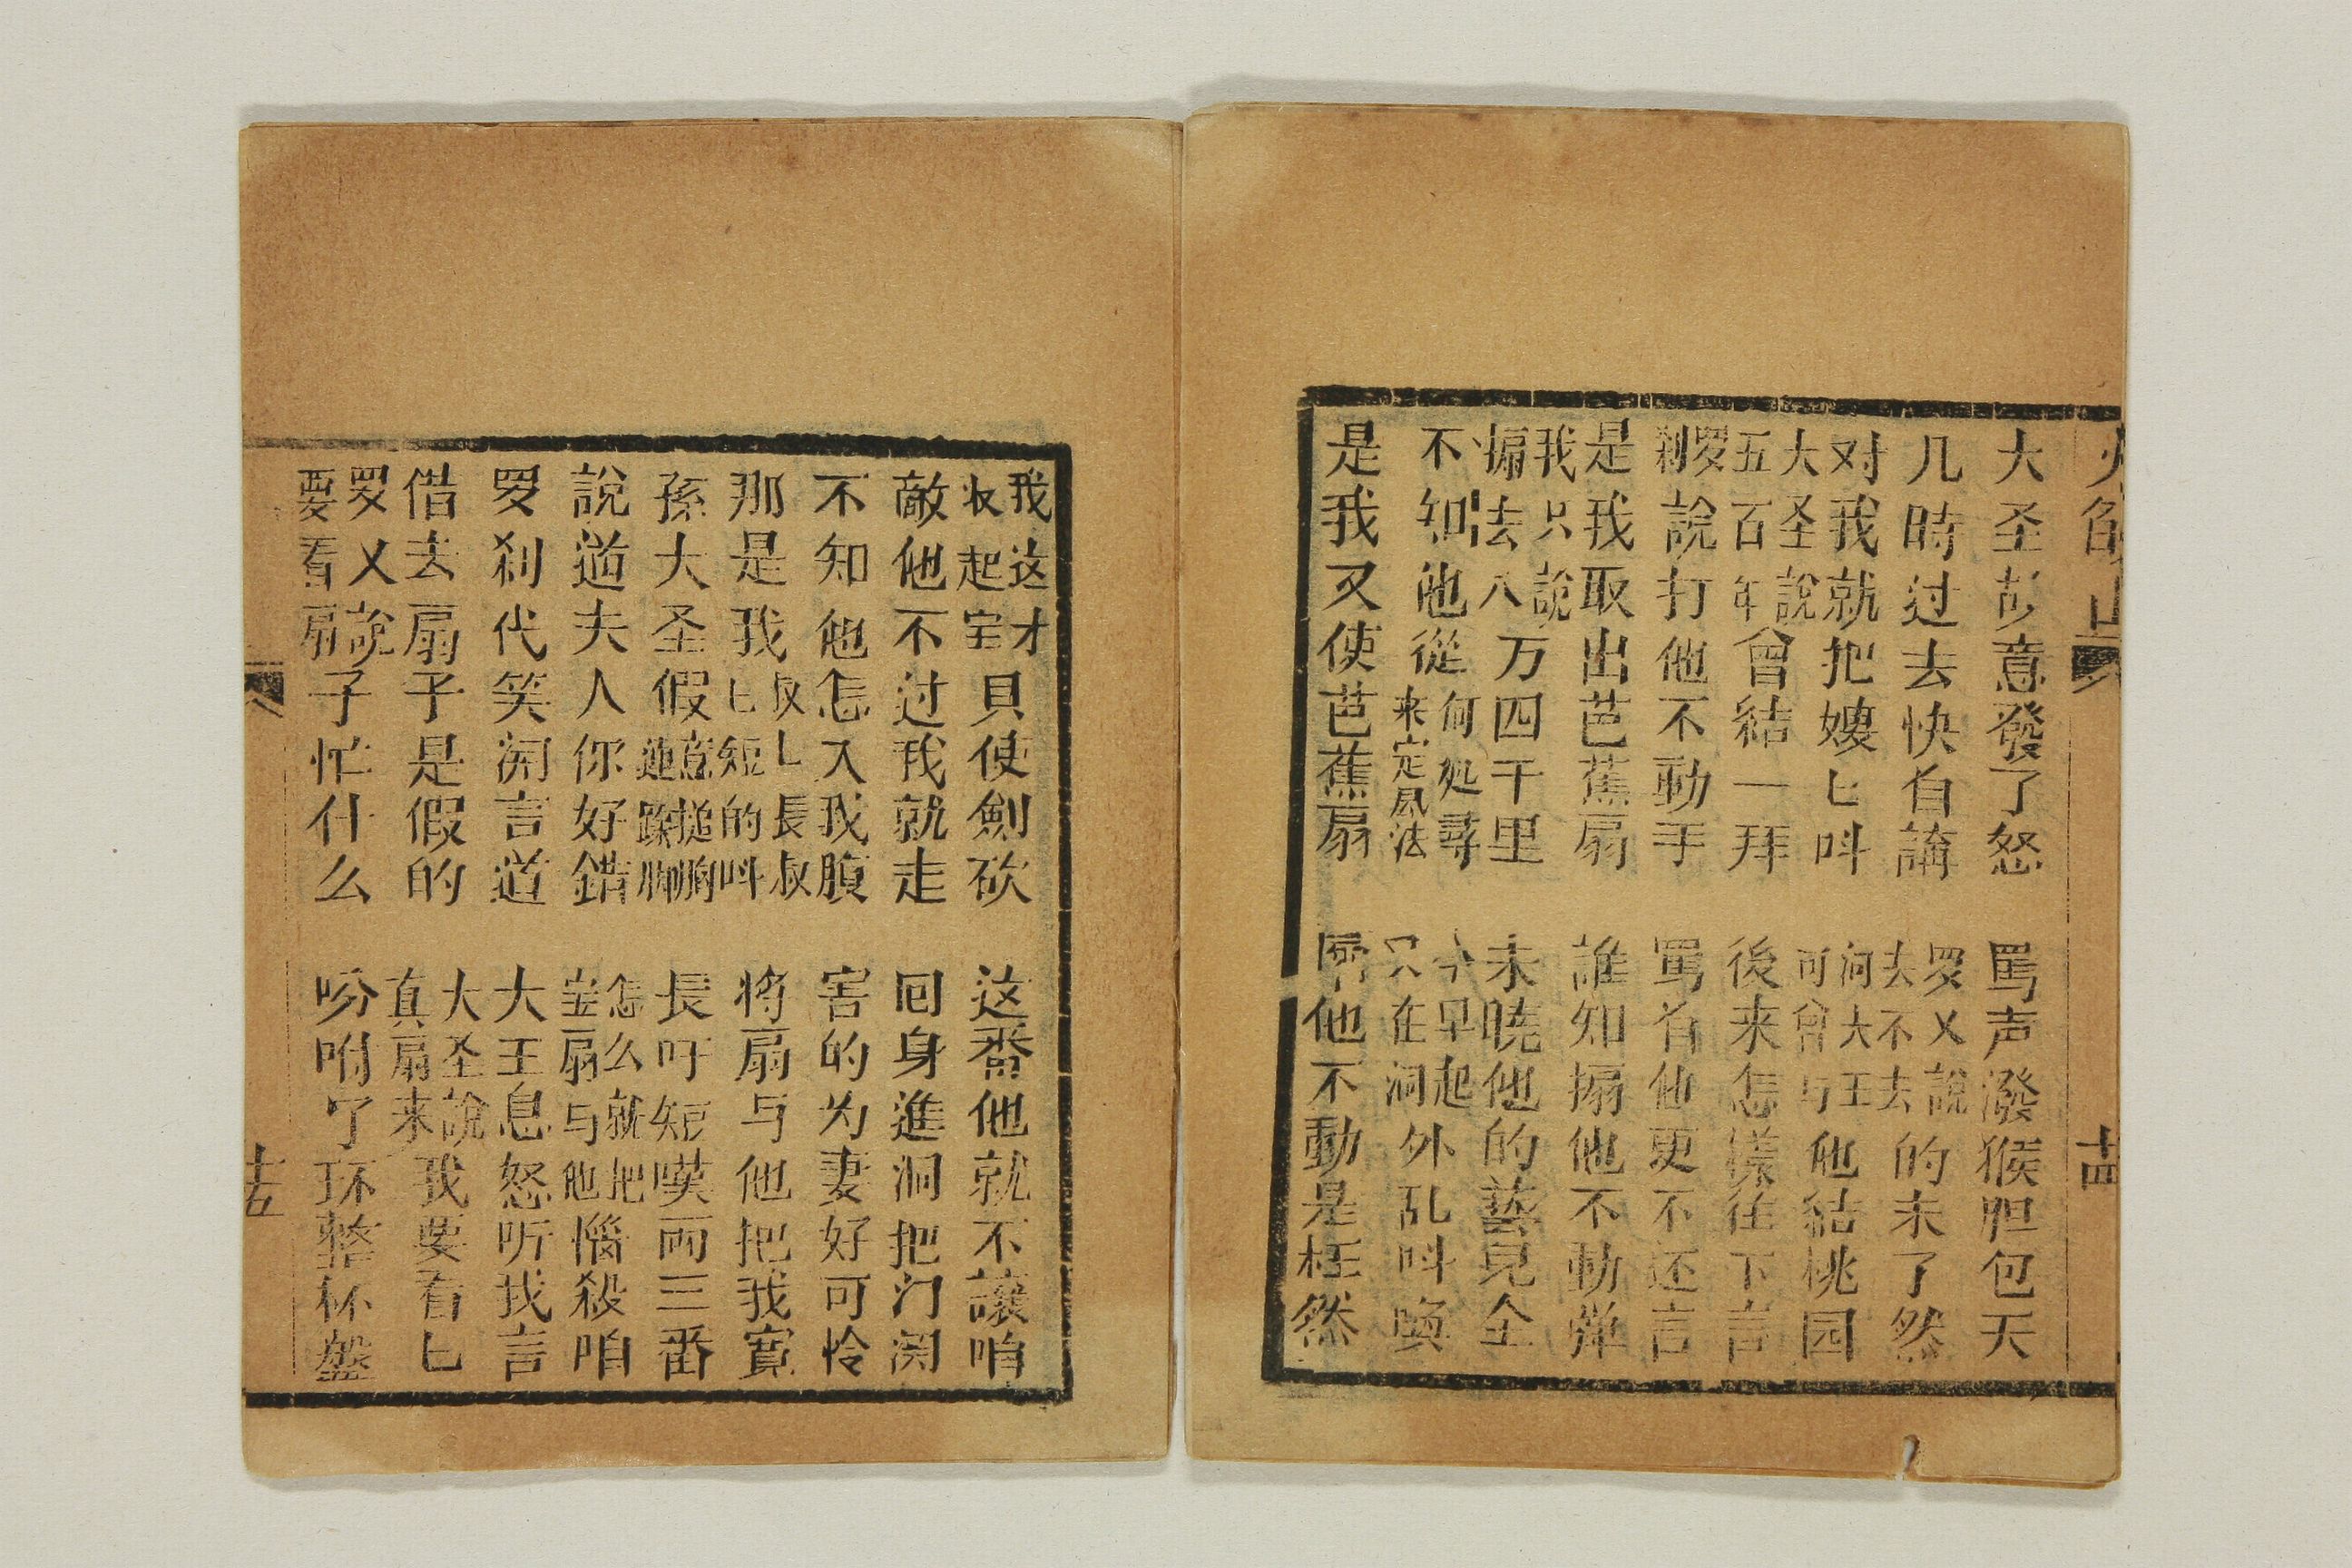 火焰山 十四
大圣意發了怒 罵声潑猴胆包天
几時过去快自講 罗又說去不去的未了然
对我就把嫂匕呌 问大王可曾与他結桃园
大圣說五百年曾結一拜 後来怎樣徃下言
罗刹說打他不動手 罵着他更不还言
是我取出芭蕉扇 誰知搧他不動弹
我只說搧去八万四千里 未曉他的藝見全
不知他從何処尋来定風法 今早起只在洞外乱呌喚
是我又使芭蕉扇 搧他不動是枉然
我这才収起宝貝使劍砍 这番他就不讓咱
敵他不过我就走 回身進洞把门関
不知他怎入我腹 害的为妻好可怜
那是我叔匕長叔匕短的呌 将扇与他把我寬
孫大圣假意搥胸連跺脚 長吁短嘆両三番
說道夫人你好錯 怎么就把宝扇与他惱殺咱
罗刹代笑開言道 大王息怒听我言
借去扇子是假的 大圣說真扇来我要看匕
罗又說要看扇子忙什么 吩咐了环整杯盤
十五